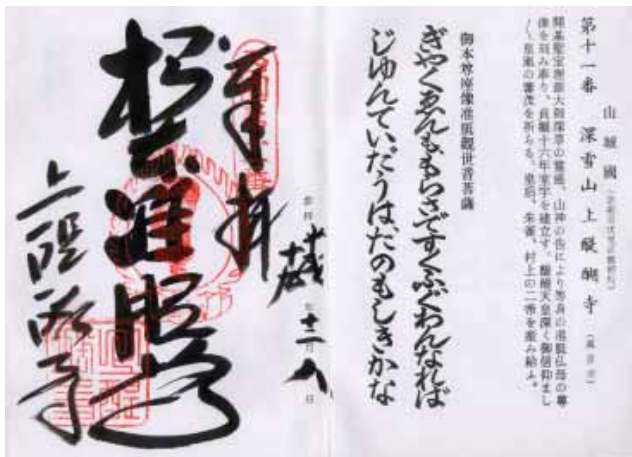 山城國
第十一番 深雪山上醍醐寺
開基聖宝理源大師深草の靈巌、山神の告により等身の准胝仏母の尊
像を刻み奉り、貞観十六年堂宇を建立す。醍醐天皇深く御信仰まし
〳〵皇胤の繁茂を祈らる。皇后、朱雀、村上の二帝を産み給ふ。
御本尊座像准胝觀世音菩薩
ぎやくゑんももらさですくふぐわんなれば
じゆんていだうはたのもしきかな
奉拝
年十二月八日
准胝
上醍醐寺